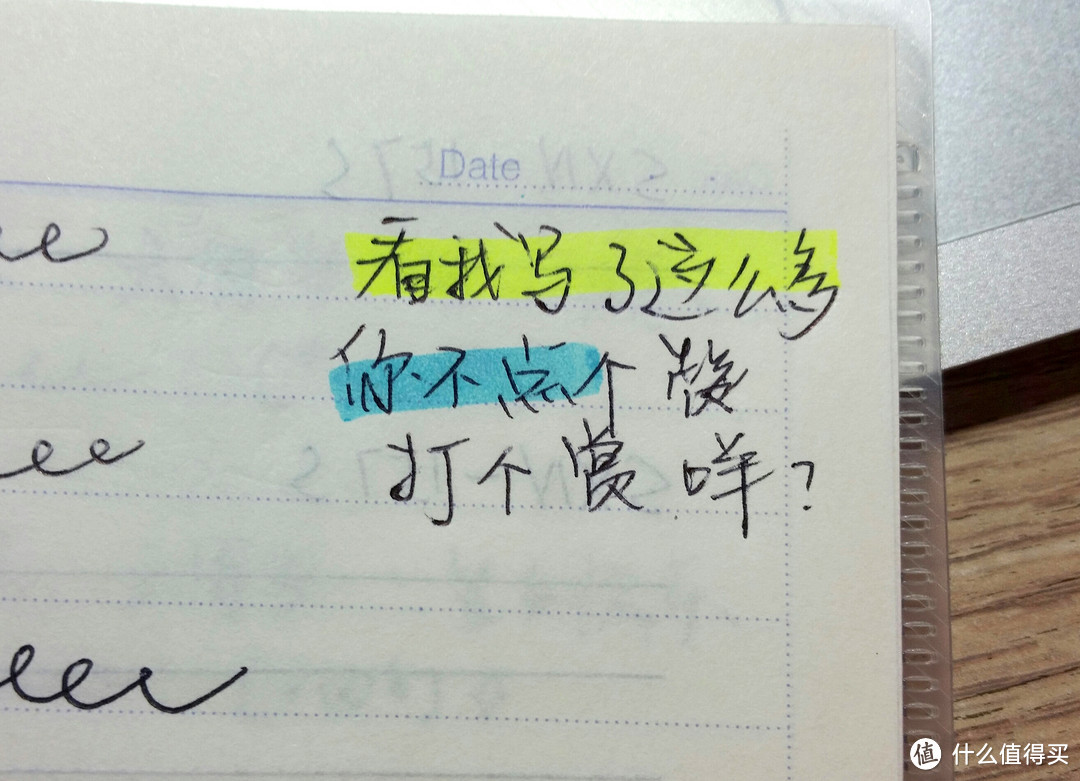 Date
看我写了这么多
你不点个赞
打个赏咩?
值 什么值得买